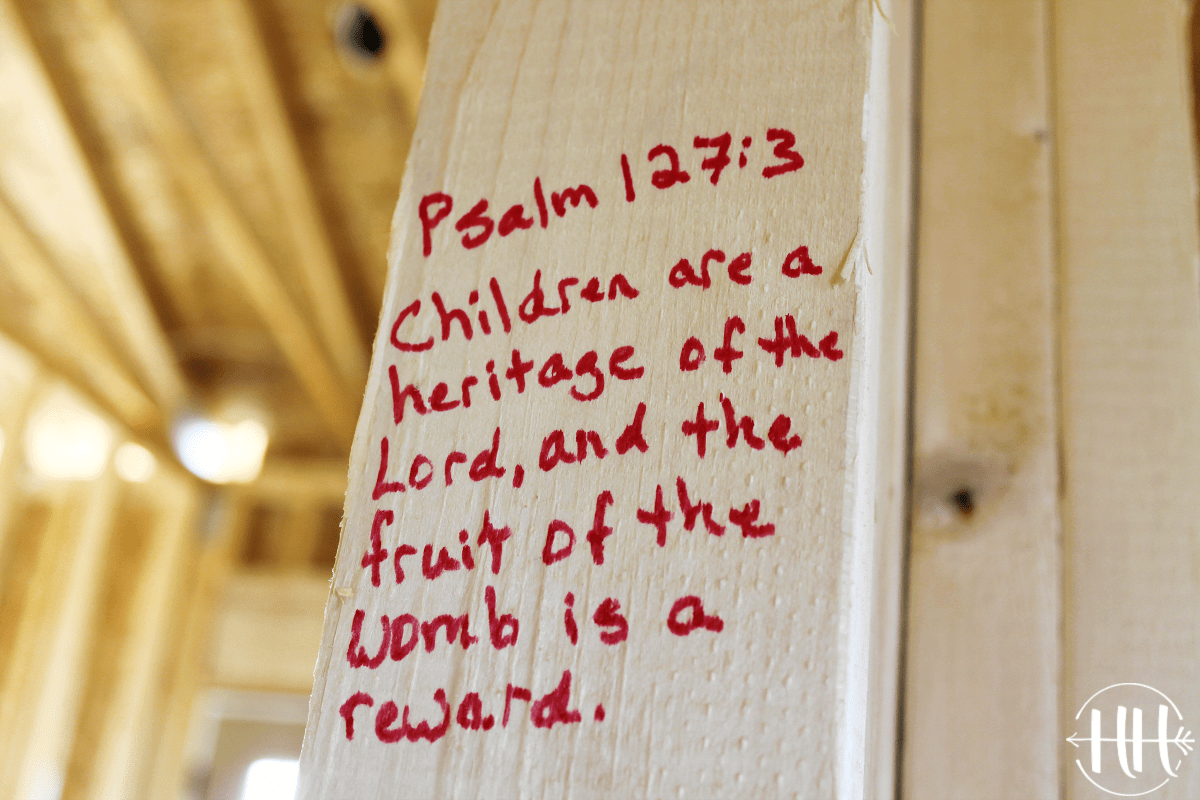 Psalm 127:3
Children are a
heritage of the
Lord, and the
fruit of the
womb is a
reward.
HH